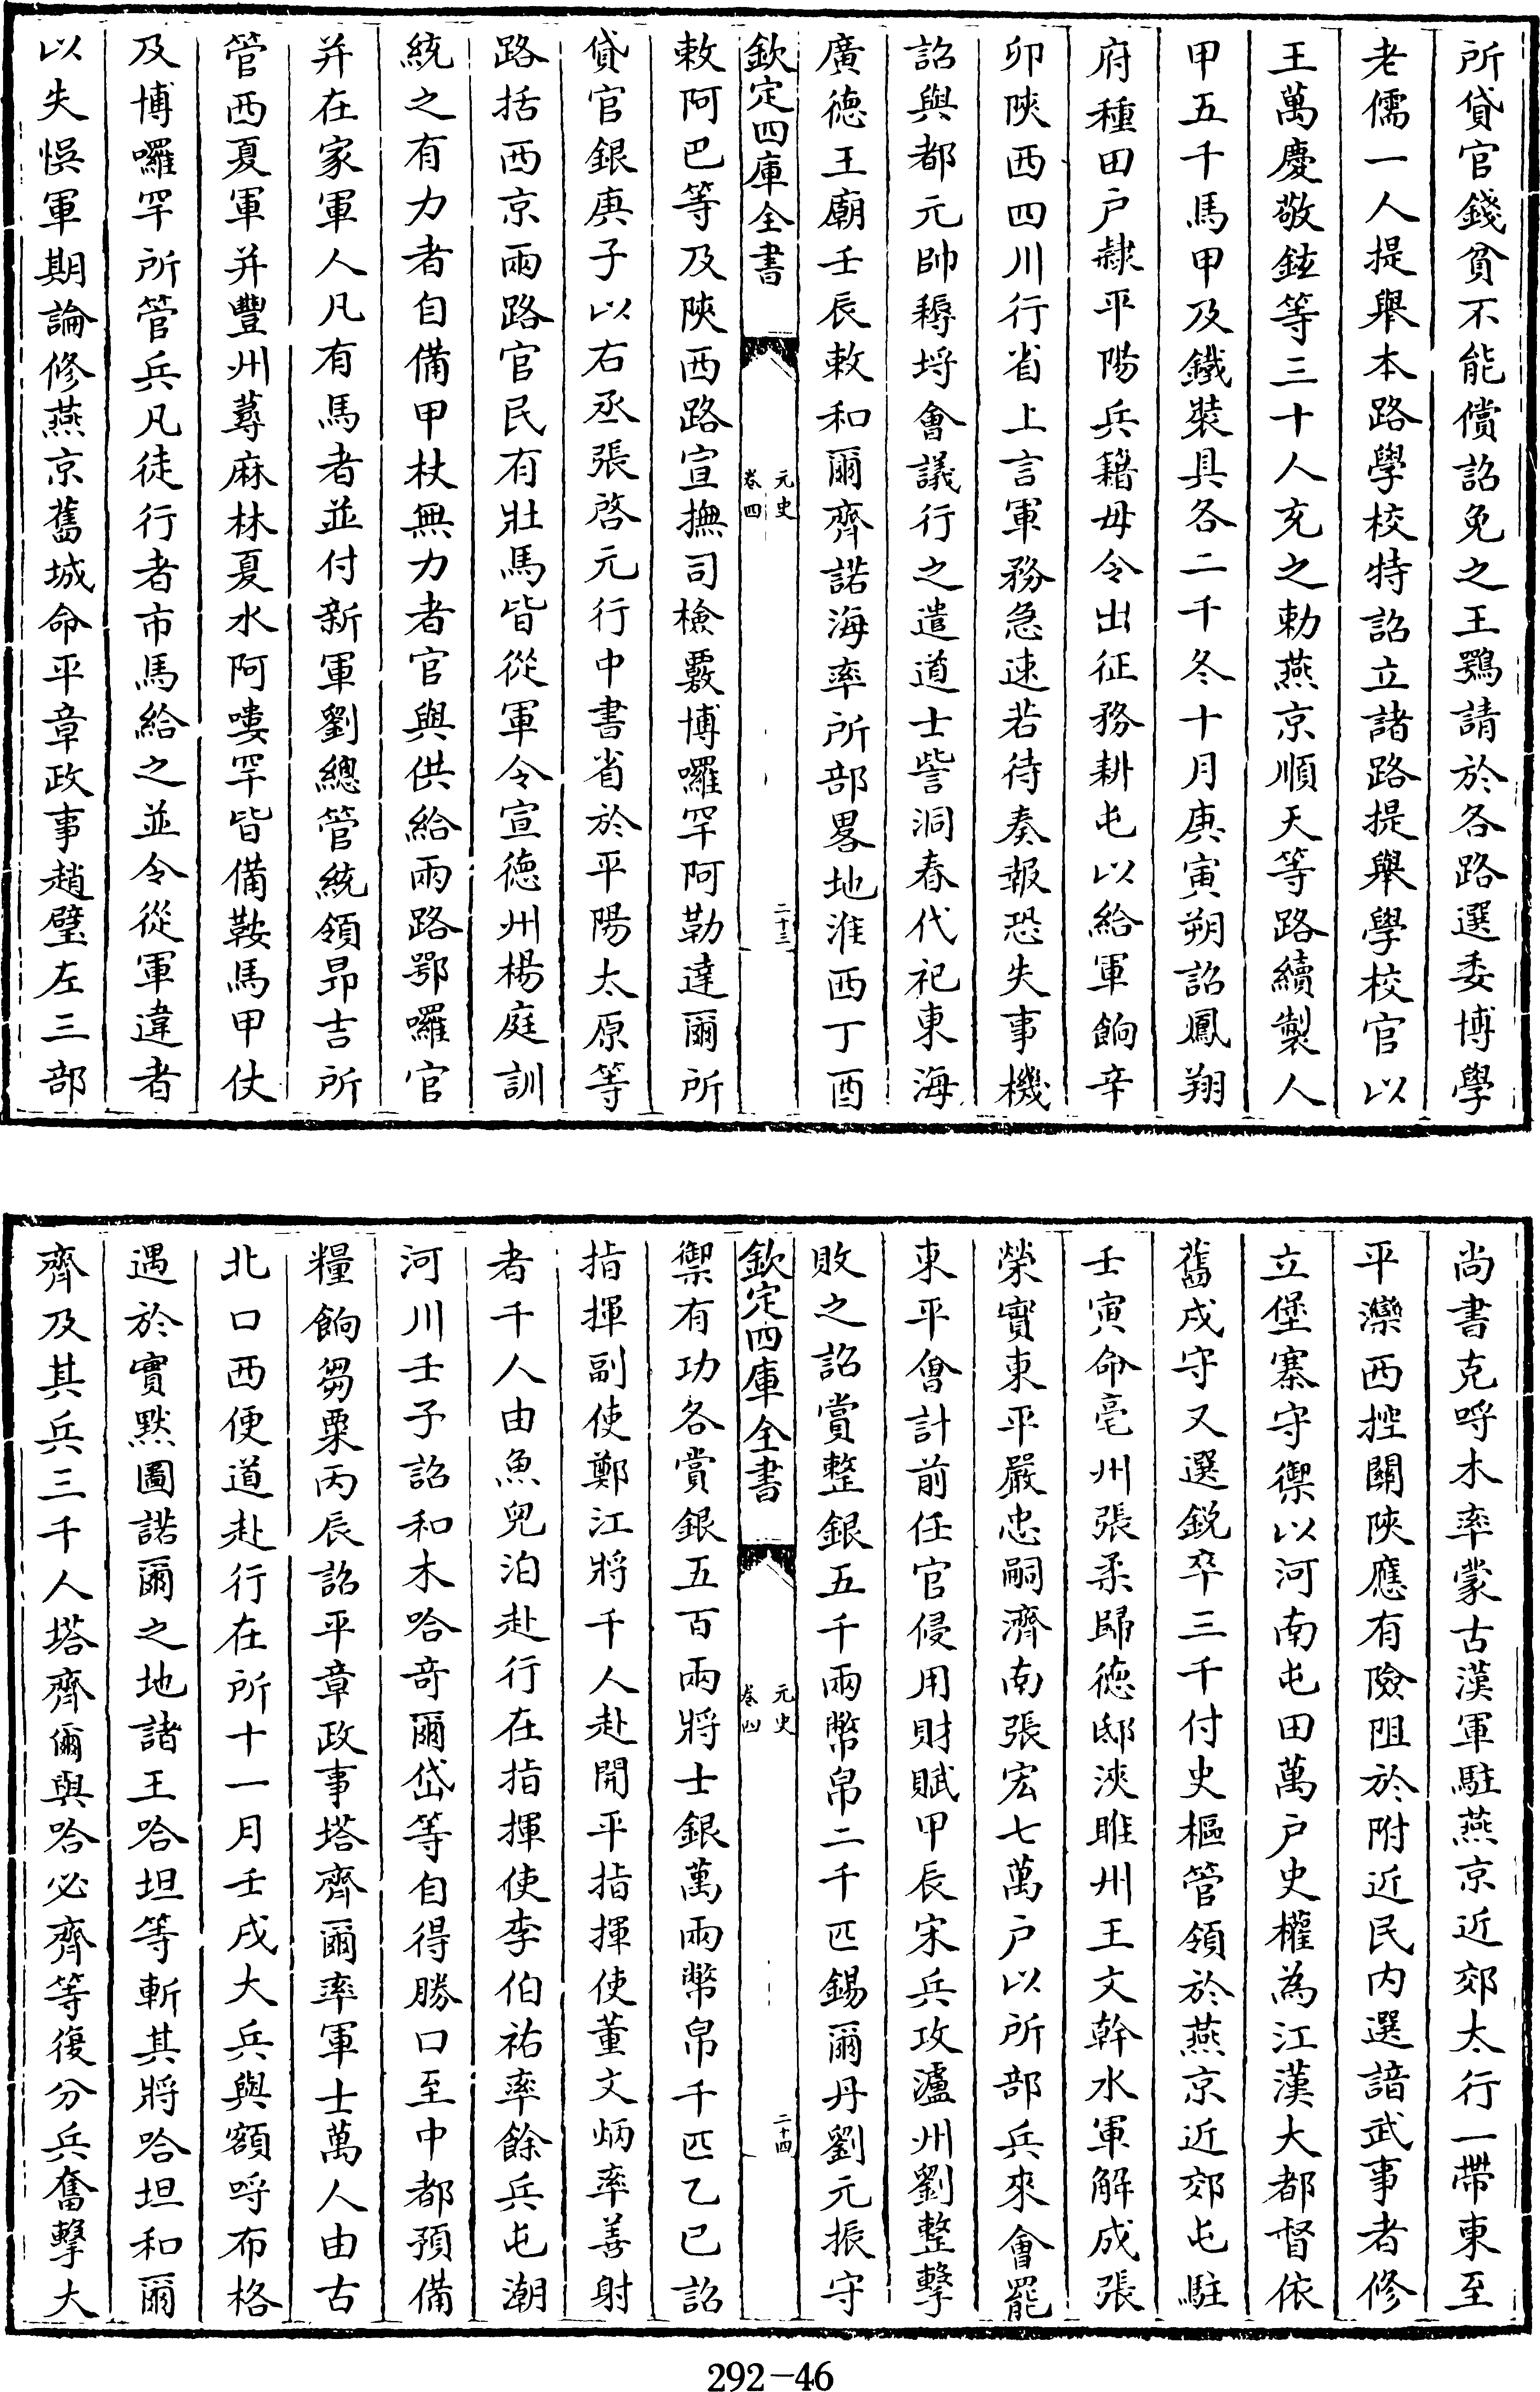 所貸官錢貧不能償詔免之王鶚請於各路選委博學
老儒一人提舉本路學校特詔立諸路提舉學校官以
王萬慶敬鉉等三十人充之勅燕京順天等路續製人
甲五千馬甲及鐵裝具各二千冬十月庚寅朔詔鳳翔
府種田户隸平陽兵籍毋令出征務耕屯以給軍餉辛
卯陜西四川行省上言軍務急速若待奏報恐失事機
詔與都元帥耨埒會議行之遣道士訾洞春代祀東海
廣徳王廟壬辰敕和爾齊諾海率所部畧地淮西丁酉
欽定四庫全書
元史
卷四
二十三
敕阿巴等及陜西路宣撫司檢覈博囉罕阿勒達爾所
貸官銀庚子以右丞張啓元行中書省於平陽太原等
路括西京兩路官民有壯馬皆從軍令宣德州楊庭訓
統之有力者自備甲杖無力者官與供給兩路鄂囉官
并在家軍人凡有馬者並付新軍劉總管統領昂吉所
管西夏軍并豐州蕁麻林夏水阿嘍罕皆備鞍馬甲仗
及博囉罕所管兵凡徒行者市馬給之並令從軍違者
以失悞軍期論修燕京舊城命平章政事趙璧左三部
尚書克呼木率蒙古漢軍駐燕京近郊太行一帶東至
平灤西控關陜應有險阻於附近民内選諳武事者修
立堡寨守禦以河南屯田萬户史權為江漢大都督依
舊戍守又選鋭卒三千付史樞管領於燕京近郊屯駐
壬寅命亳州張柔歸徳邸浹睢州王文幹水軍解成張
榮實東平嚴忠嗣濟南張宏七萬户以所部兵來會罷
東平㑹計前任官侵用財賦甲辰宋兵攻瀘州劉整擊
敗之詔賞整銀五千兩幣帛二千匹錫爾丹劉元振守
欽定四庫全書
元史
卷四
二十四
禦有功各賞銀五百兩將士銀萬兩幣帛千匹乙巳詔
指揮副使鄭江將千人赴開平指揮使董文炳率善射
者千人由魚兒泊赴行在指揮使李伯祐率餘兵屯潮
河川壬子詔和木哈竒爾岱等自得勝口至中都預備
糧餉芻粟丙辰詔平章政事塔齊爾率軍士萬人由古
北口西便道赴行在所十一月壬戌大兵與額呼布格
遇於實黙圖諾爾之地諸王哈坦等斬其將哈坦和爾
齊及其兵三千人塔齊爾與哈必齊等復分兵奮擊大
292-46